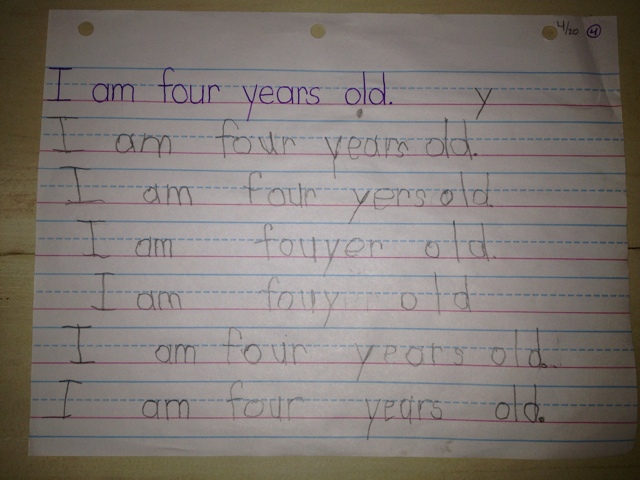 4/20 4
I am four years old. y
I am four years old.
I am four yers old
I am fouyer old.
I am fouy old
I am four years old.
I am four years old.